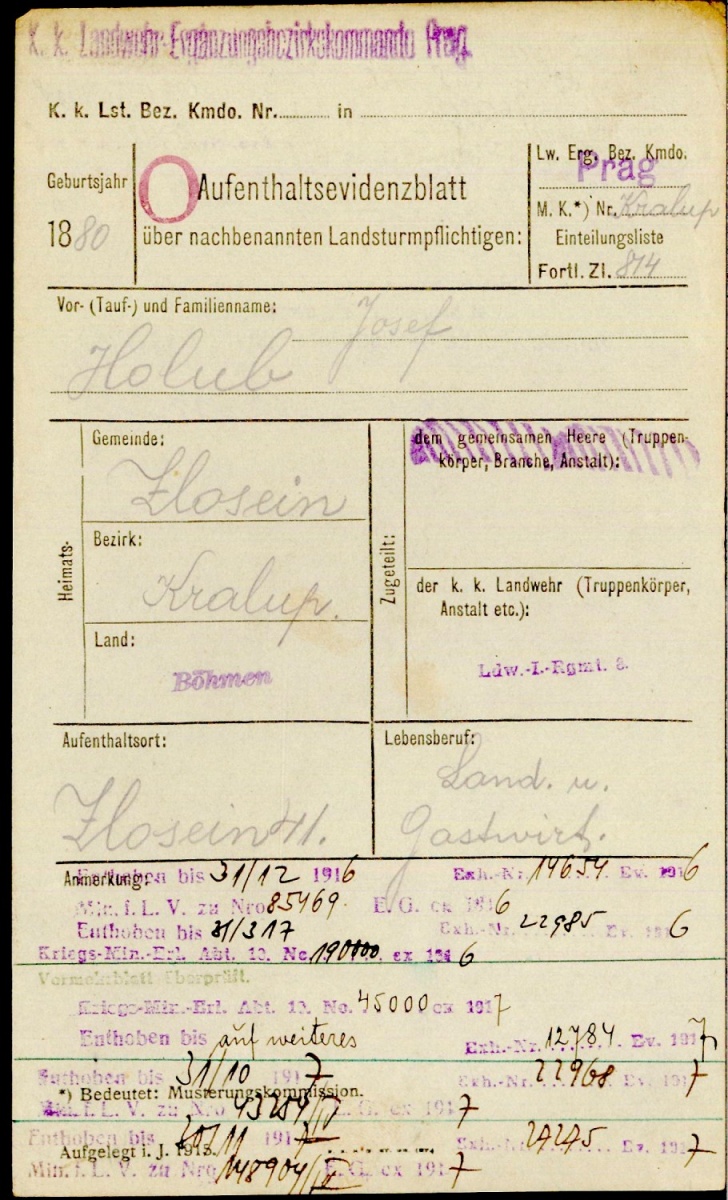 K. k. Landwehr-Ergänzungsbezirkskommando Prag
K. k. Lst. Bez. Kmdo. Nr. in
Geburtsjahr
1880
O
Aufenthaltsevidenzblatt
über nachbenannten Landsturmpflichtigen:
Lw. Erg. Bez. Kmdo.
Prag
M. K.*) Nr. Kralup
Einteilungsliste
Fortl. Zl. 814
Vor- (Tauf-) und Familienname:
Josef
Holub
Heimats-
Gemeinde:
Zlosein
Bezirk:
Kralup.
Land:
Böhmen
Zugeteilt:
dem gemeinsamen Heere (Truppen-
körper, Branche, Anstalt):
der k. k. Landwehr (Truppenkörper,
Anstalt etc.):
Ldw.-I.-Rgmt. 8.
Aufenthaltsort:
Zlosein 41.
Lebensberuf:
Land. u.
Gastwirt.
Anmerkung:
Enthoben bis 31/12 1916 Exh.-Nr. 14654 Ev. 1916
Min. f. L. V. zu Nro 85469. E. G. ex 1916
Enthoben bis 31/3 17 Exh.-Nr. 22985 Ev. 1916
Kriegs-Min.-Erl. Abt. 10. No. 190000. ex 1916
Vormerkblatt überprüft.
Kriegs-Min.-Erl. Abt. 10. No. 45000 ex 1917
Enthoben bis auf weiteres Exh.-Nr. 12784 Ev. 1917
Enthoben bis 31/10 1917 Exh.-Nr. 22968 Ev. 1917
*) Bedeutet: Musterungskommission.
Min. f. L. V. zu Nro E. G. ex 1917
Enthoben bis 1917 Exh.-Nr. 24245 Ev. 1917
Aufgelegt i. J. 1913.
Min. f. L. V. zu Nro 148904/IV E. G. ex 1917